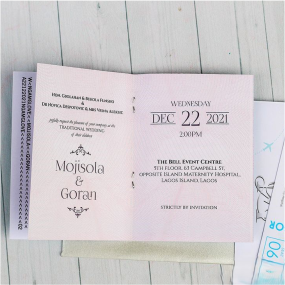 Hon. Gbolahan & Bisola
&
Dr
joyfully request the pleasure of your company at the
TRADITIONAL WEDDING
of their children
Mojisola
&
Goran
Wednesday
Dec 22 2021
2:00PM
The Bell Event Centre
5th Floor, 63 Campbell St.
opposite Island Maternity Hospital,
Lagos Island, Lagos
Strictly by Invitation